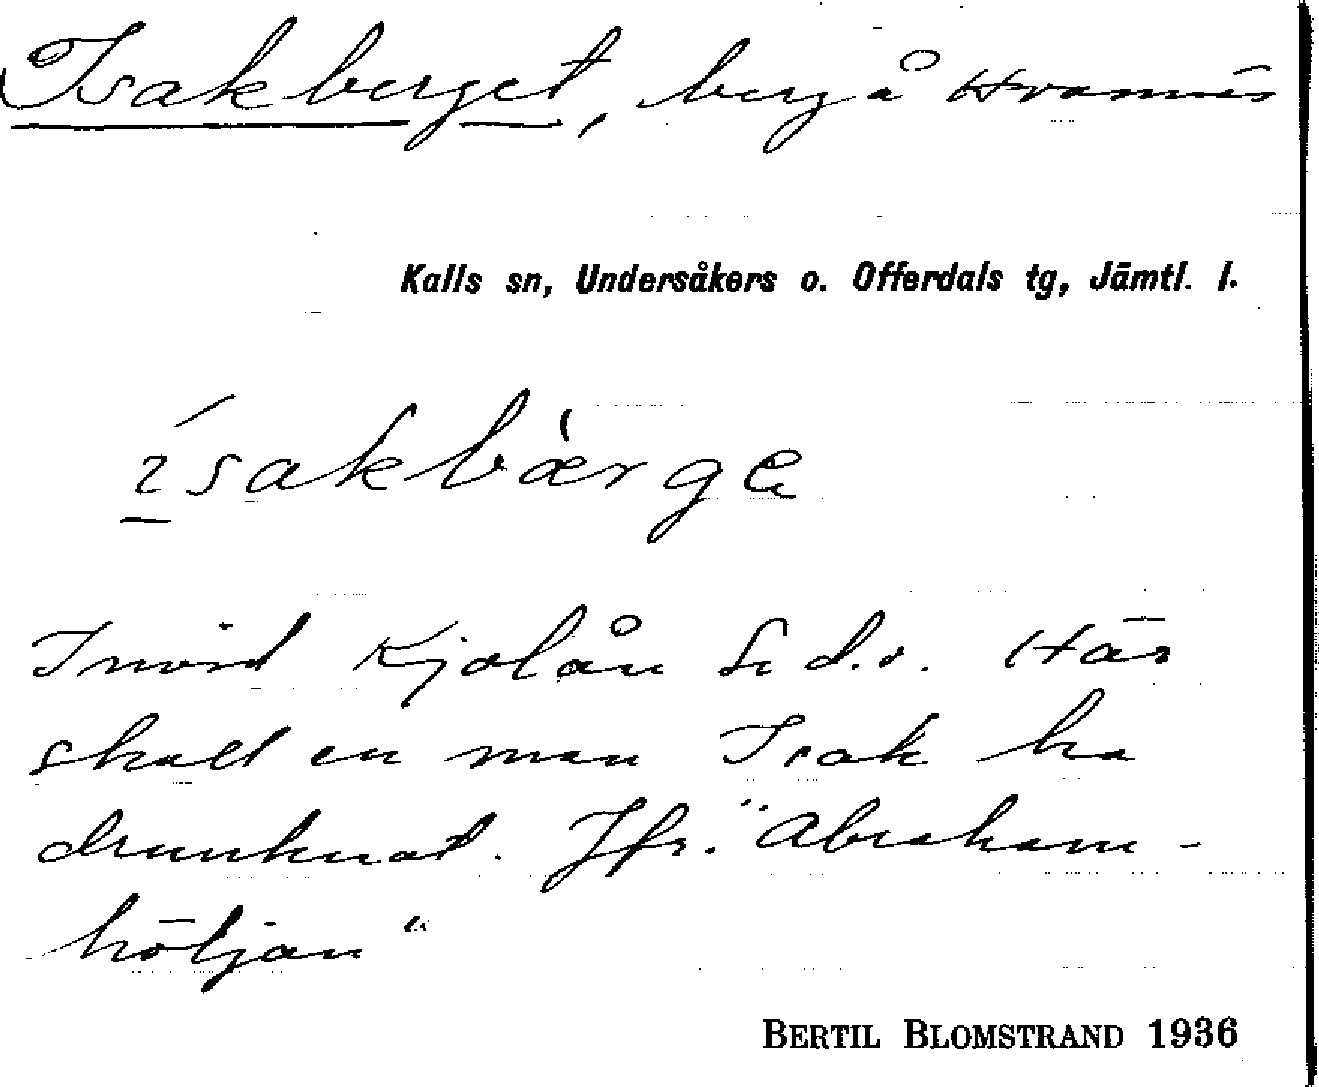 Isakberget, berg å Kvarnnäs
Kalls sn, Undersåkers o. Offerdals tg, Jämtl. l.
isakbærge
Invid Kjolån S. d.o. Här
skall en man Isak ha
drunknat. Jfr. "Abraham-
höljan"
BERTIL BLOMSTRAND 1936